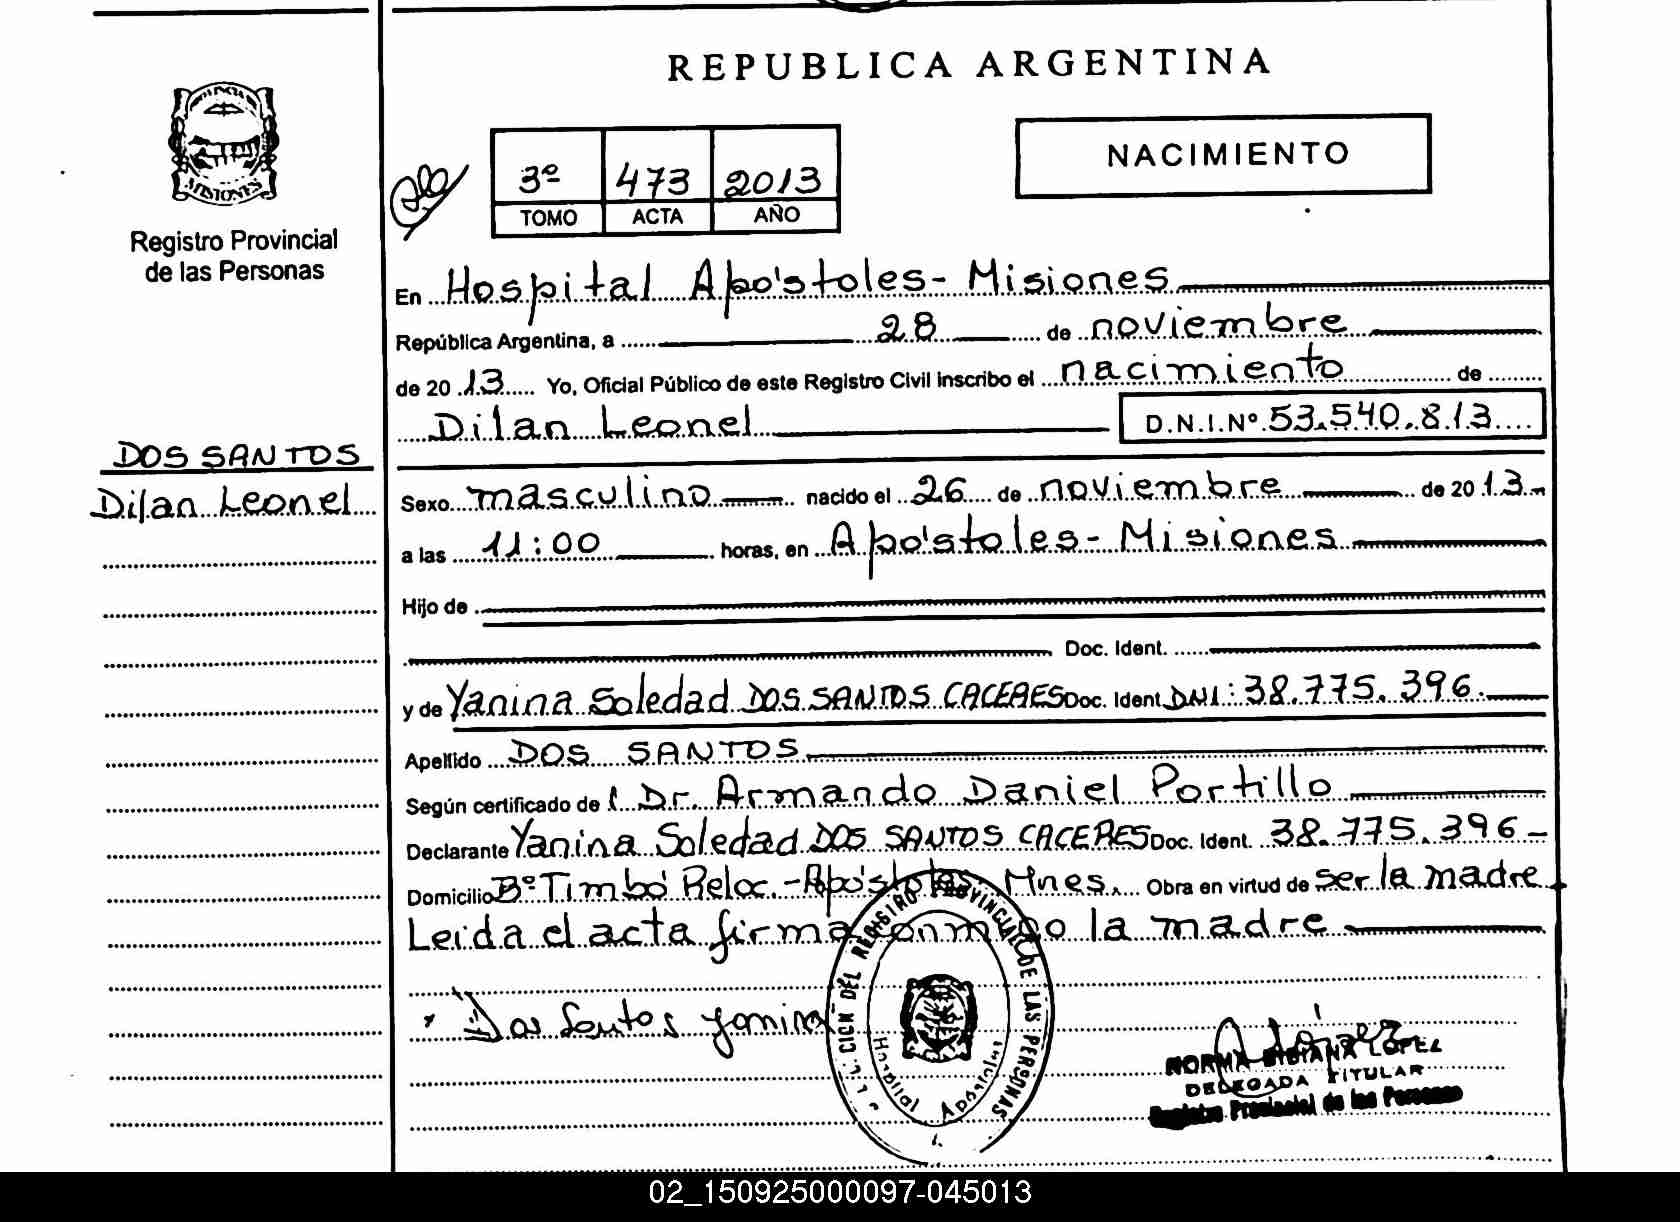 REPUBLICA ARGENTINA
PROVINCIA
MISIONES
Registro Provincial
de las Personas
3º 473 2013
TOMO ACTA AÑO
NACIMIENTO
En Hospital Apóstoles - Misiones
República Argentina, a 28 de noviembre
de 2013 Yo, Oficial Público de este Registro Civil inscribo el nacimiento de
Dilan Leonel D.N.I.Nº 53.540.813
DOS SANTOS
Dilan Leonel
Sexo masculino nacido el 26 de noviembre de 2013
a las 11:00 horas, en Apóstoles - Misiones
Hijo de
Doc. Ident.
y de Yanina Soledad DOS SANTOS CACERES Doc. Ident. DNI: 38.775.396.
Apellido DOS SANTOS
Según certificado de l Dr. Armando Daniel Portillo
Declarante Yanina Soledad DOS SANTOS CACERES Doc. Ident. 38.775.396
Domicilio Bº Timbó Reloc. - Apóstoles, Mnes. Obra en virtud de ser la madre
Leida el acta firma conmigo la madre
Dos Santos yanina
DEL REGISTRO PROVINCIAL DE LAS PERSONAS
Hospital Apóstoles
NORMA BIBIANA LOPEZ
DELEGADA TITULAR
Registro Provincial de las Personas
02_150925000097-045013